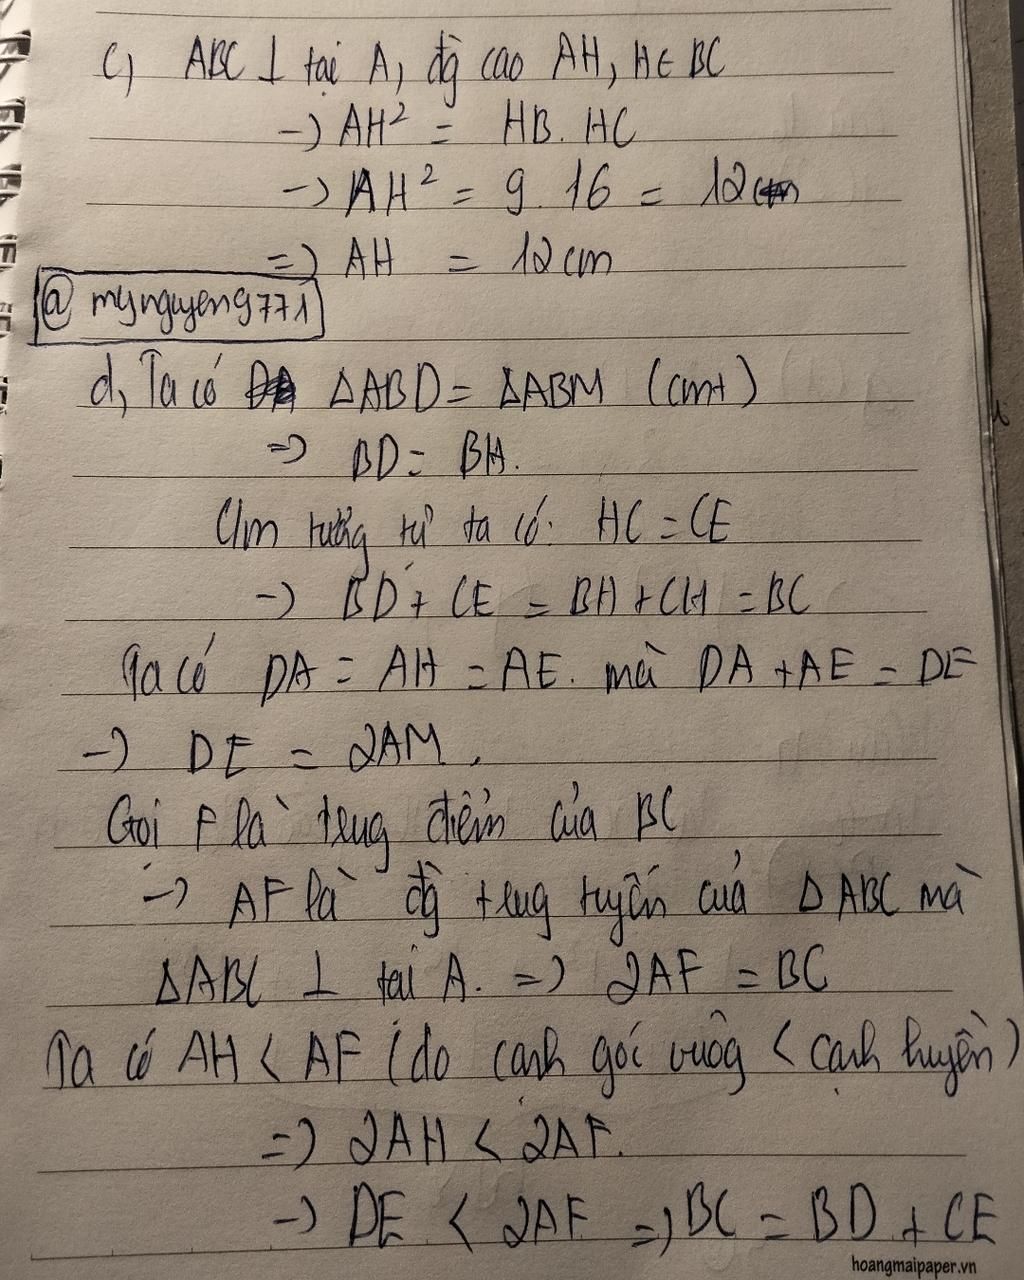 c, ABC ⊥ tại A, đg cao AH, H∈ BC
-) AH² = HB. HC
-) AH² = 9. 16 = 12
=) AH = 12 cm
@ mynguyen9771
d, Ta có ΔABD = ΔABM (cmt)
=) BD = BH.
Cm tương tự ta có: HC = CE
-) BD + CE = BH + CH = BC
Ta có DA = AH = AE. mà DA + AE = DE
-) DE = 2AM.
Gọi F là trug điểm của BC
-) AF là đg trug tuyến của Δ ABC mà
ΔABC ⊥ tại A. =) 2AF = BC
Ta có AH < AF (do cạnh góc vuôg < cạnh huyền)
=) 2AH < 2AF.
-) DE < 2AF =) BC = BD + CE
hoangmaipaper.vn